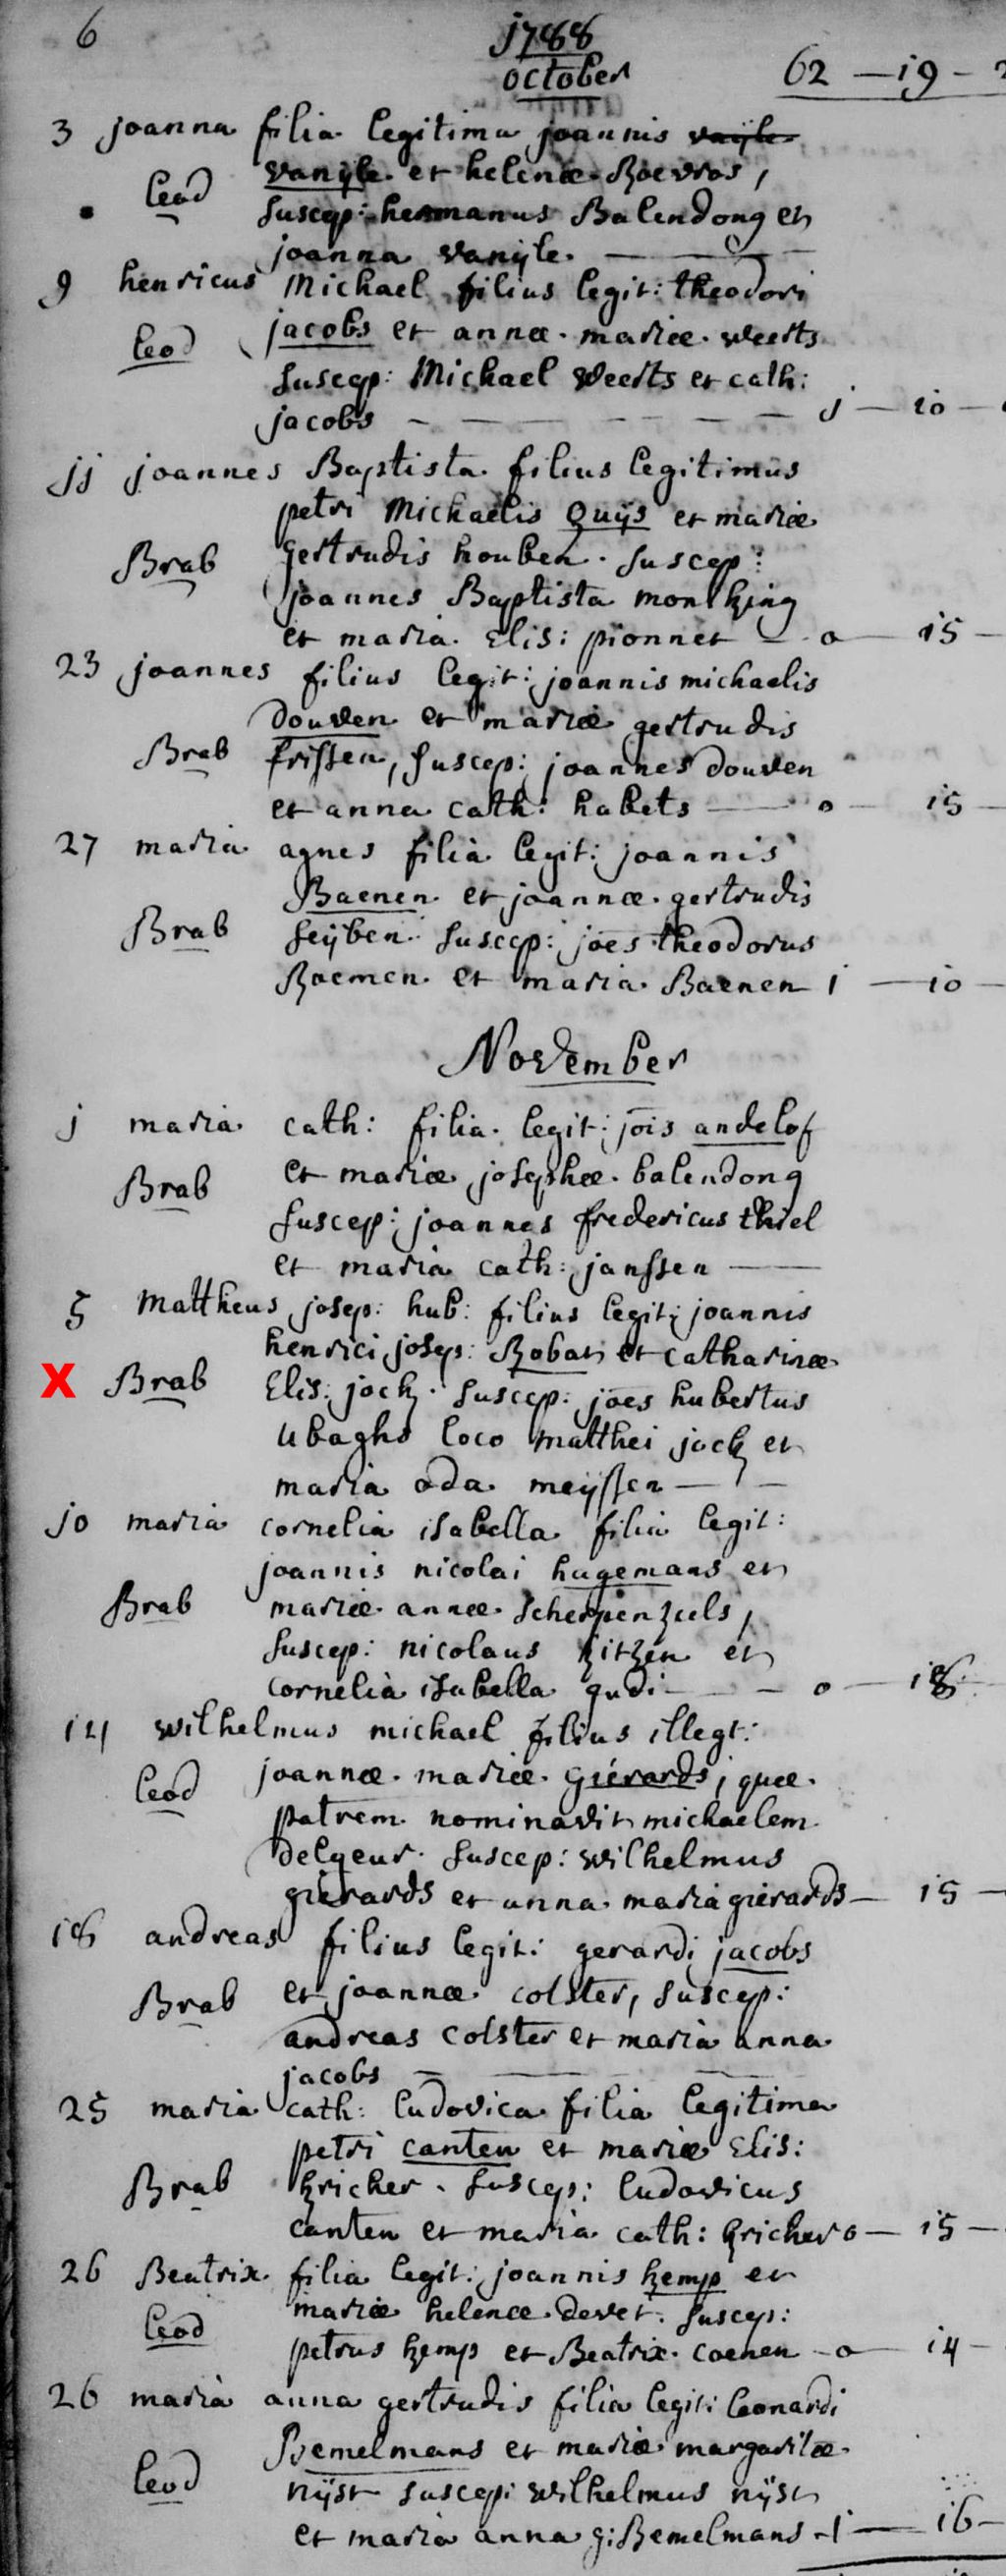 6
1788
october
62 - 19 - 2
3 joanna filia legitima joannis vaijle
vanijle et helenæ Roevros,
Leod
suscep: hermanus Balendong et
joanna vanijle.
9 henricus Michael filius legit: theodori
Leod jacobs et annæ mariæ weerts
suscep: Michael weerts et cath:
jacobs — j — 10 —
jj joannes Baptista filius legitimus
petri Michaelis Quijs et mariæ
Brab gertrudis houben. suscep:
joannes Baptista
et maria Elis: pionnet — o — 15 —
23 joannes filius legit: joannis michaelis
douven et mariæ gertrudis
Brab frissen, suscep: joannes douven
et anna cath: habets — o — 15 —
27 maria agnes filia legit: joannis
Baenen et joannæ gertrudis
Brab seijben suscep: joes theodorus
Roemen et maria Baenen 1 — 10 —
November
j maria cath: filia legit: jois andelof
Brab et mariæ josephæ balendong
suscep: joannes fredericus thiel
et maria cath: janssen —
5 Mattheus josep: hub: filius legit: joannis
henrici josep: Robat et catharinæ
X Brab Elis: jock. suscep: joes hubertus
ubaghs loco matthei jock et
maria oda meijssen —
jo maria cornelia isabella filia legit:
joannis nicolai hagemans et
Brab mariæ annæ scherpenzeels,
suscep: nicolaus kitzen et
cornelia isabella gudi — o — 18
14 wilhelmus michael filius illegt:
Leod joannæ mariæ giérards, quæ
patrem nominavit michaelem
delgeur. suscep: wilhelmus
giérards et anna maria giérards — 15 —
18 andreas filius legit: gerardi jacobs
Brab et joannæ colster, suscep:
andreas colster et maria anna
jacobs —
25 maria cath: ludovica filia legitima
petri canten et mariæ Elis:
Brab kricher. suscep: ludovicus
canten et maria cath: kricher o — 15 —
26 Beatrix filia legit: joannis kemp et
Leod mariæ helenæ devet. suscep:
petrus kemp et Beatrix coenen — o — 14 —
26 maria anna gertrudis filia legit: leonardi
Bemelmans et mariæ margaritæ
Leod nijst suscep: wilhelmus nijst
et maria anna g: Bemelmans — 1 — 16 —